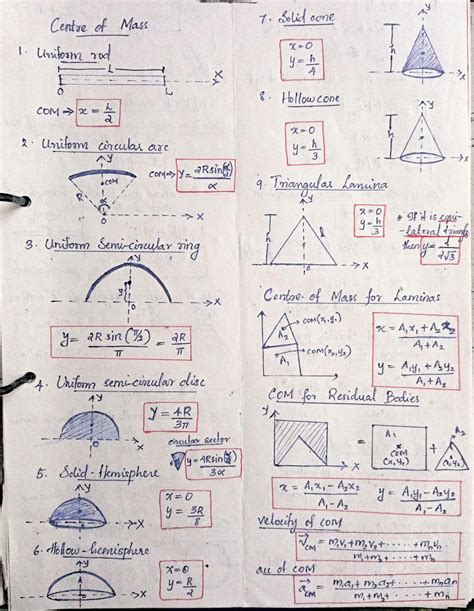 Centre of Mass
1. Uniform rod
L
O
L
X
COM ⇒ x = L/2
2. Uniform circular arc
Y
COM
R
α
O
X
COM → y = 2R sin(α/2)/α
3. Uniform Semi-circular ring
Y
y
O
X
y = 2R sin(π/2)/π = 2R/π
4. Uniform semi-circular disc
y
O
X
y = 4R/3π
circular sector
y = 4R sin(α/2)/3α
5. Solid-Hemisphere
y
X
x = 0
y = 3R/8
6. Hollow-hemisphere
y
O
X
x = 0
y = R/2
7. Solid cone
x = 0
y = h/4
h
y
X
8. Hollow cone
x = 0
y = h/3
h
y
X
9. Triangular Lamina
y
h
l
O
X
x = 0
y = h/3
* If it is equi-
-lateral triangle
then y = l/2√3
Centre of Mass for Laminas
A2
COM(x1,y1)
A1
COM(x2,y2)
x = A1x1 + A2x2/A1 + A2
y = A1y1 + A2y2/A1 + A2
COM for Residual Bodies
y
X
=
A1
COM
(x1,y1)
+
A2
(x2,y2)
x = A1x1 - A2x2/A1 - A2
y = A1y1 - A2y2/A1 - A2
velocity of COM
VCM = m1v1 + m2v2 + ...... + mnvn/m1 + m2 + ...... + mn
acc of COM
aCM = m1a1 + m2a2 + ..... + mnan/m1 + m2 + ...... + mn